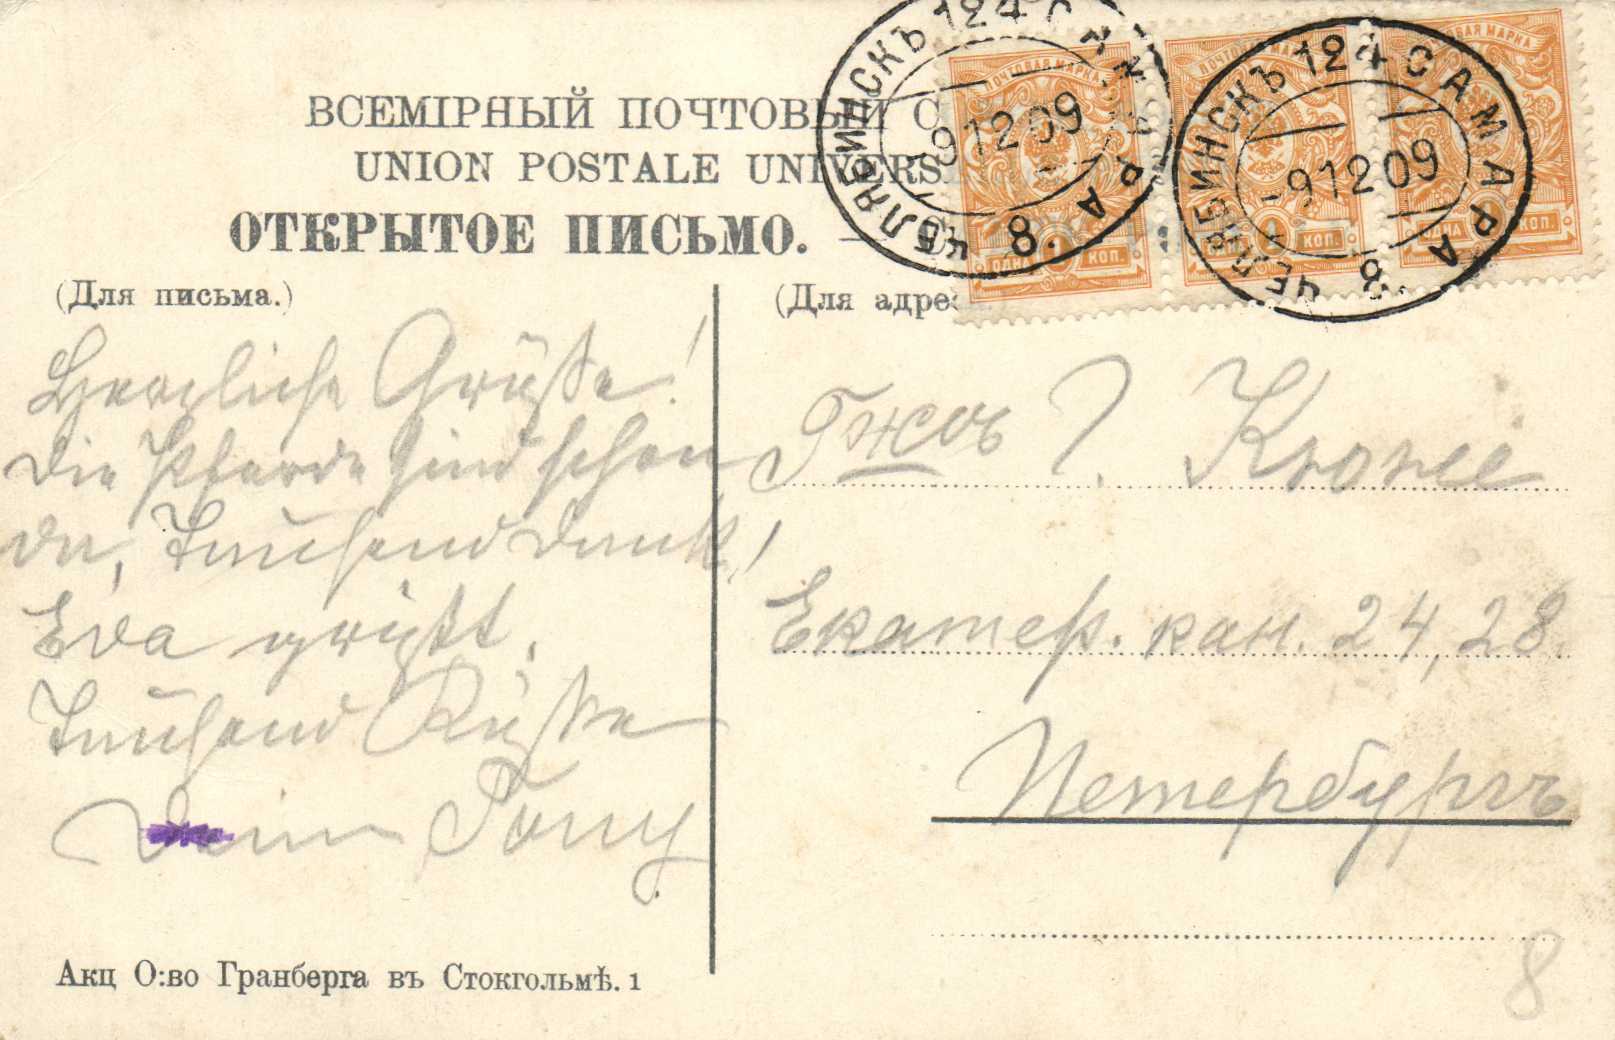 ВСЕМІРНЫЙ ПОЧТОВЫЙ С
UNION POSTALE UNIVERS
ОТКРЫТОЕ ПИСЬМО.
ЧЕЛЯБИНСКЪ 124 САМАРА
9 12 09
8
ЧЕЛЯБИНСКЪ 124 САМАРА
-9 12 09
8
ПОЧТОВАЯ МАРКА
ОДНА 1 КОП.
ПОЧТОВАЯ МАРКА
1 КОП.
ПОЧТОВАЯ МАРКА
ОДНА КОП.
(Для письма.)
Herzliche Grüße!
Die Pferde sind schon
da, Tausend Dank!
Eva grüßt.
Tausend Küsse
Dein Tony
(Для адрес
Гжѣ Г. Крюгеръ
Екатер. кан. 24, 28.
Петербургъ
Акц О:во Гранберга въ Стокгольмѣ. 1
8